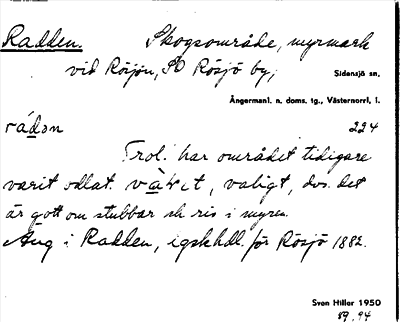 Radden. Skogsområde, myrmark
vid Rösjön, SO Rösjö by,
Sidensjö sn.
Ångermanl. n. doms. tg., Västernorrl. l.
rádən 224
Trol. har området tidigare
varit odlat. våket, valigt, dvs. det
är gott om stubbar och ris i myren.
Äng i Radden, igskhdl. för Rösjö 1882.
Sven Hiller 1950
89. 94